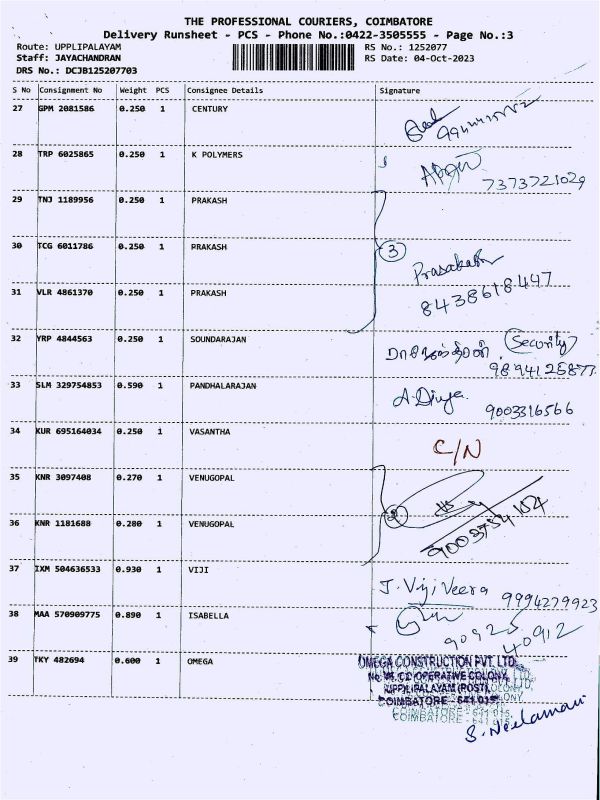 THE PROFESSIONAL COURIERS, COIMBATORE
Delivery Runsheet - PCS - Phone No.:0422-3505555 - Page No.:3
Route: UPPLIPALAYAM RS No.: 1252077
Staff: JAYACHANDRAN RS Date: 04-Oct-2023
DRS No.: DCJB125207703
S No Consignment No Weight PCS Consignee Details Signature
27 GPM 2081586 0.250 1 CENTURY
28 TRP 6025865 0.250 1 K POLYMERS
7373721029
29 TNJ 1189956 0.250 1 PRAKASH
30 TCG 6011786 0.250 1 PRAKASH 3
Prasakash
31 VLR 4861370 0.250 1 PRAKASH 8438618447
32 YRP 4844563 0.250 1 SOUNDARAJAN (Security)
9894125877
33 SLM 329754853 0.590 1 PANDHALARAJAN A. Divya 9003316566
34 KUR 695164034 0.250 1 VASANTHA
C/N
35 KNR 3097408 0.270 1 VENUGOPAL
36 KNR 1181688 0.280 1 VENUGOPAL 2 9003754104
37 IXM 504636533 0.930 1 VIJI
J. Viji, Veera 9994279923
38 MAA 570909775 0.890 1 ISABELLA
90925 40912
39 TKY 482694 0.600 1 OMEGA OMEGA CONSTRUCTION PVT. LTD.
CO OPERATIVE COLONY,
UPPLIPALAYAM (POST),
COIMBATORE - 641 015
COIMBATORE - 641 015
S. Neelamani